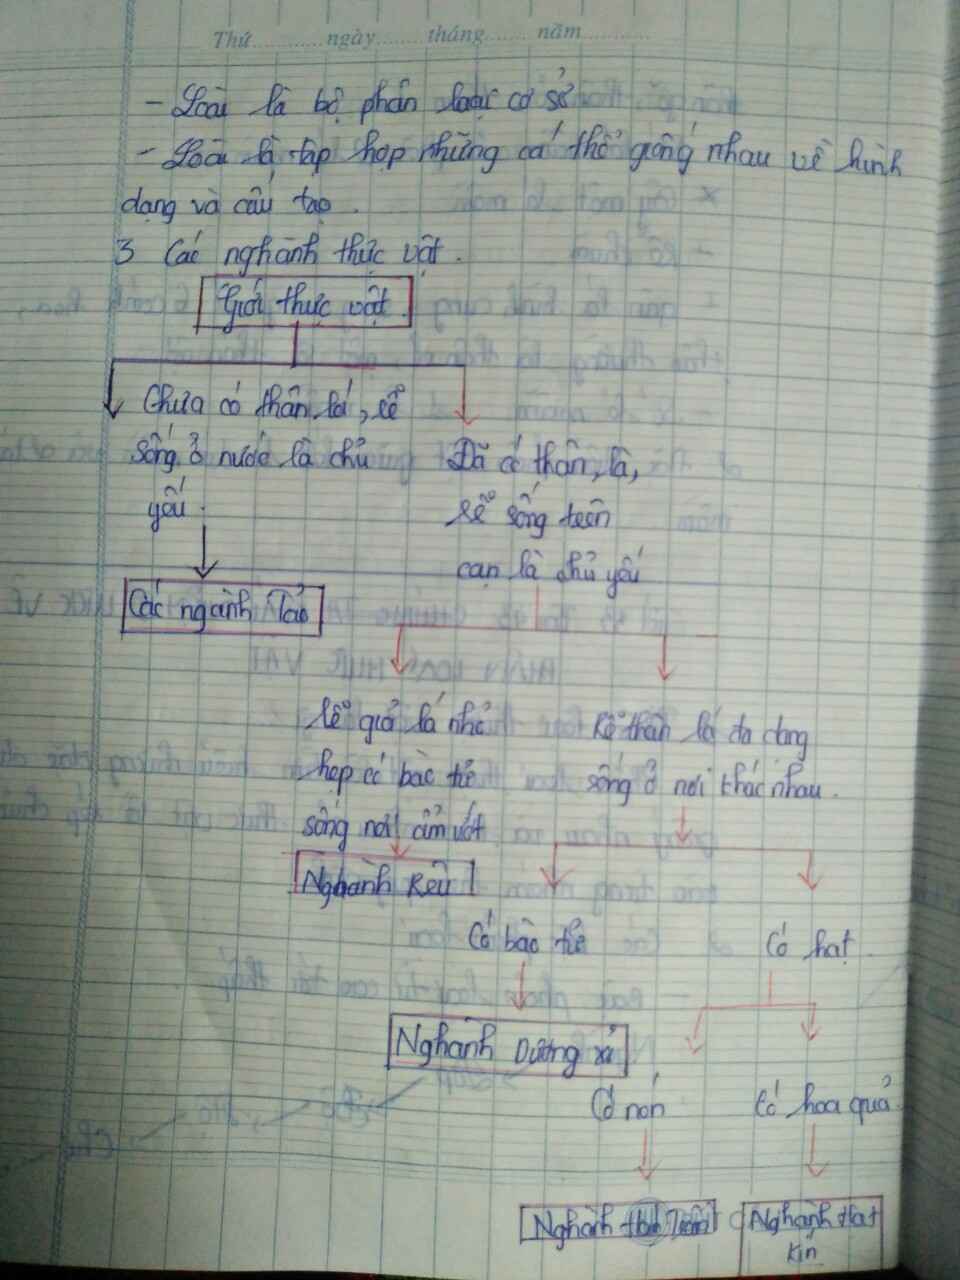 Thứ............ngày........tháng.......năm............
- Loài là bộ phân loại cơ sở
- Loài là tập hợp những cá thể giống nhau về hình
dạng và cấu tạo.
3 Các nghành thực vật.
Giới thực vật.
Chưa có thân lá, rễ
sống ở nước là chủ
yếu.
Đã có thân, lá,
rễ sống trên
cạn là chủ yếu
Các ngành Tảo
rễ giả lá nhỏ
hẹp có bào tử
sống nơi ẩm ướt
Rễ thân lá đa dạng
sống ở nơi khác nhau.
Nghành Rêu
Có bào tử
Có hạt.
Nghành Dương xỉ
Có nón
Có hoa quả.
Nghành Trần
Nghành Hạt
kín